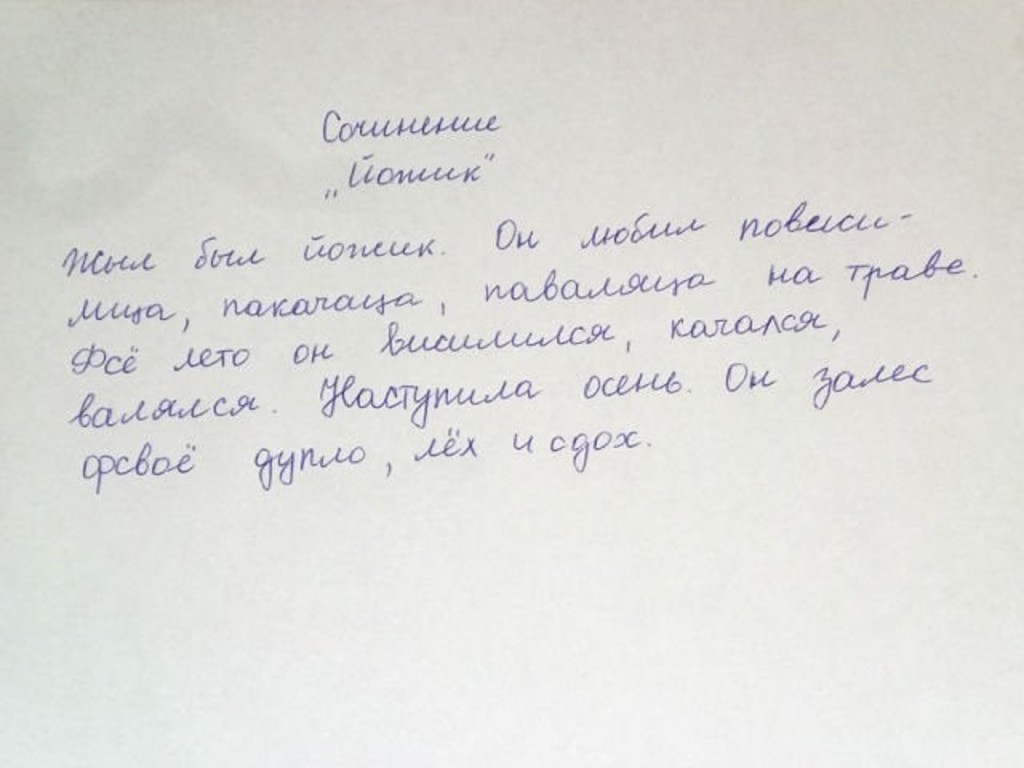 Сочинение
„Йожик“
Жыл был йожик. Он любил повиси-
лица, пакачаца, паваляца на траве.
Фсё лето он висилился, качался,
валялся. Наступила осень. Он залес
фсвоё дупло, лёх и сдох.